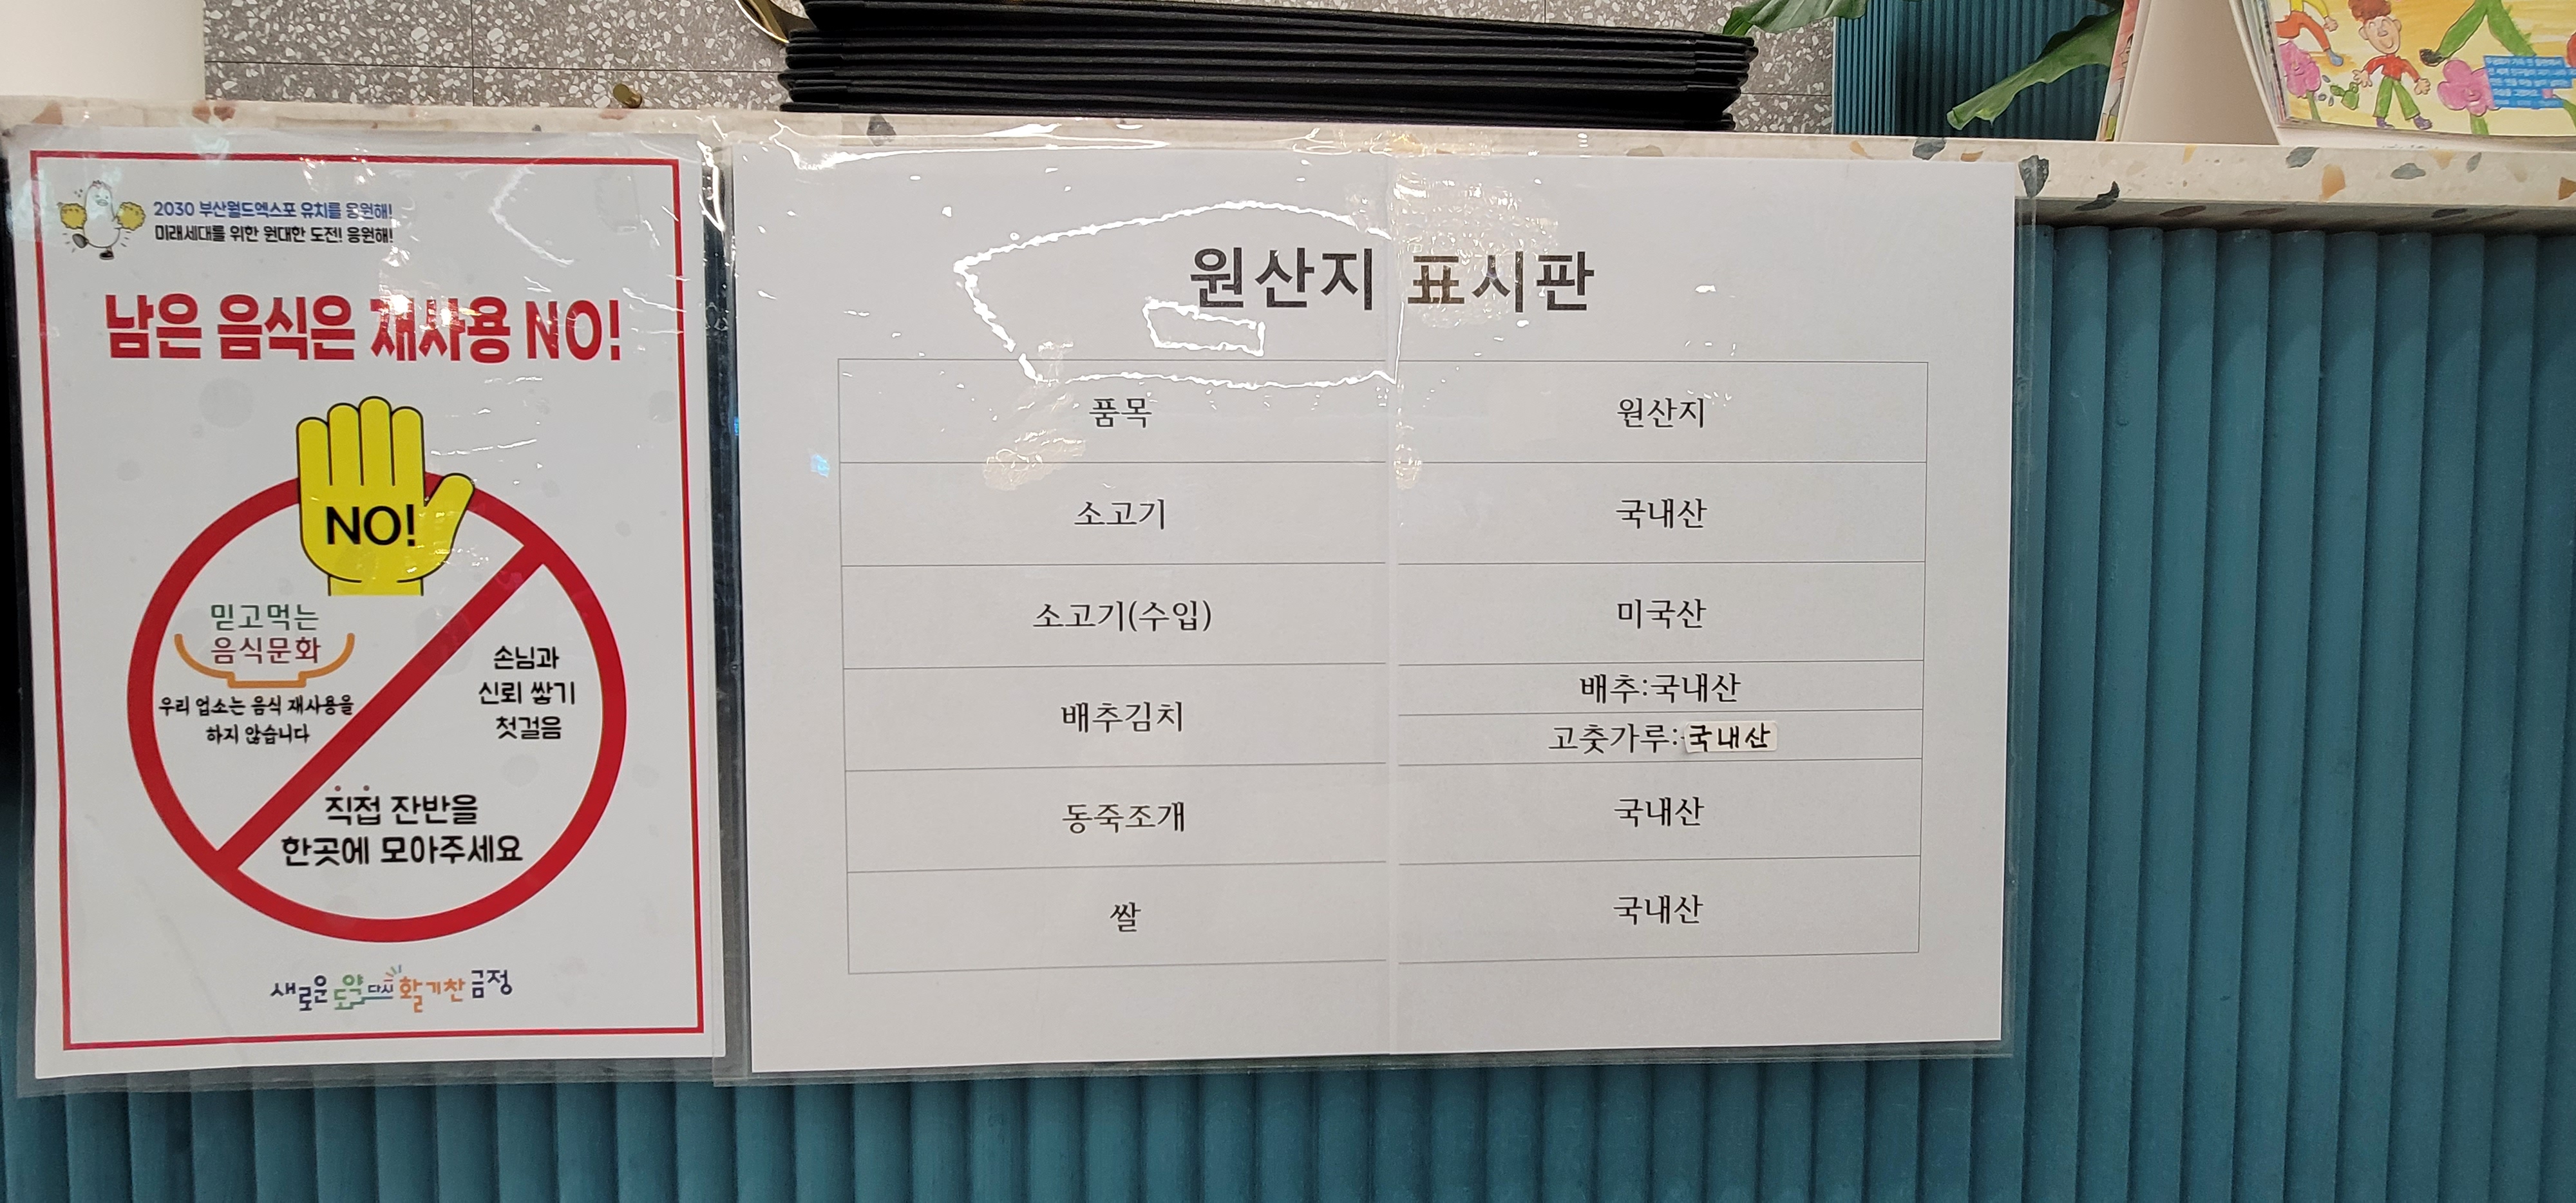 2030 부산월드엑스포 유치를 응원해!
미래세대를 위한 원대한 도전! 응원해!
남은 음식은 재사용 NO!
NO!
믿고먹는
음식문화
우리 업소는 음식 재사용을
하지 않습니다
손님과
신뢰 쌓기
첫걸음
직접 잔반을
한곳에 모아주세요
새로운 도약 다시 활기찬 금정
원산지 표시판
품목 원산지
소고기 국내산
소고기(수입) 미국산
배추김치 배추:국내산
고춧가루:국내산
동죽조개 국내산
쌀 국내산